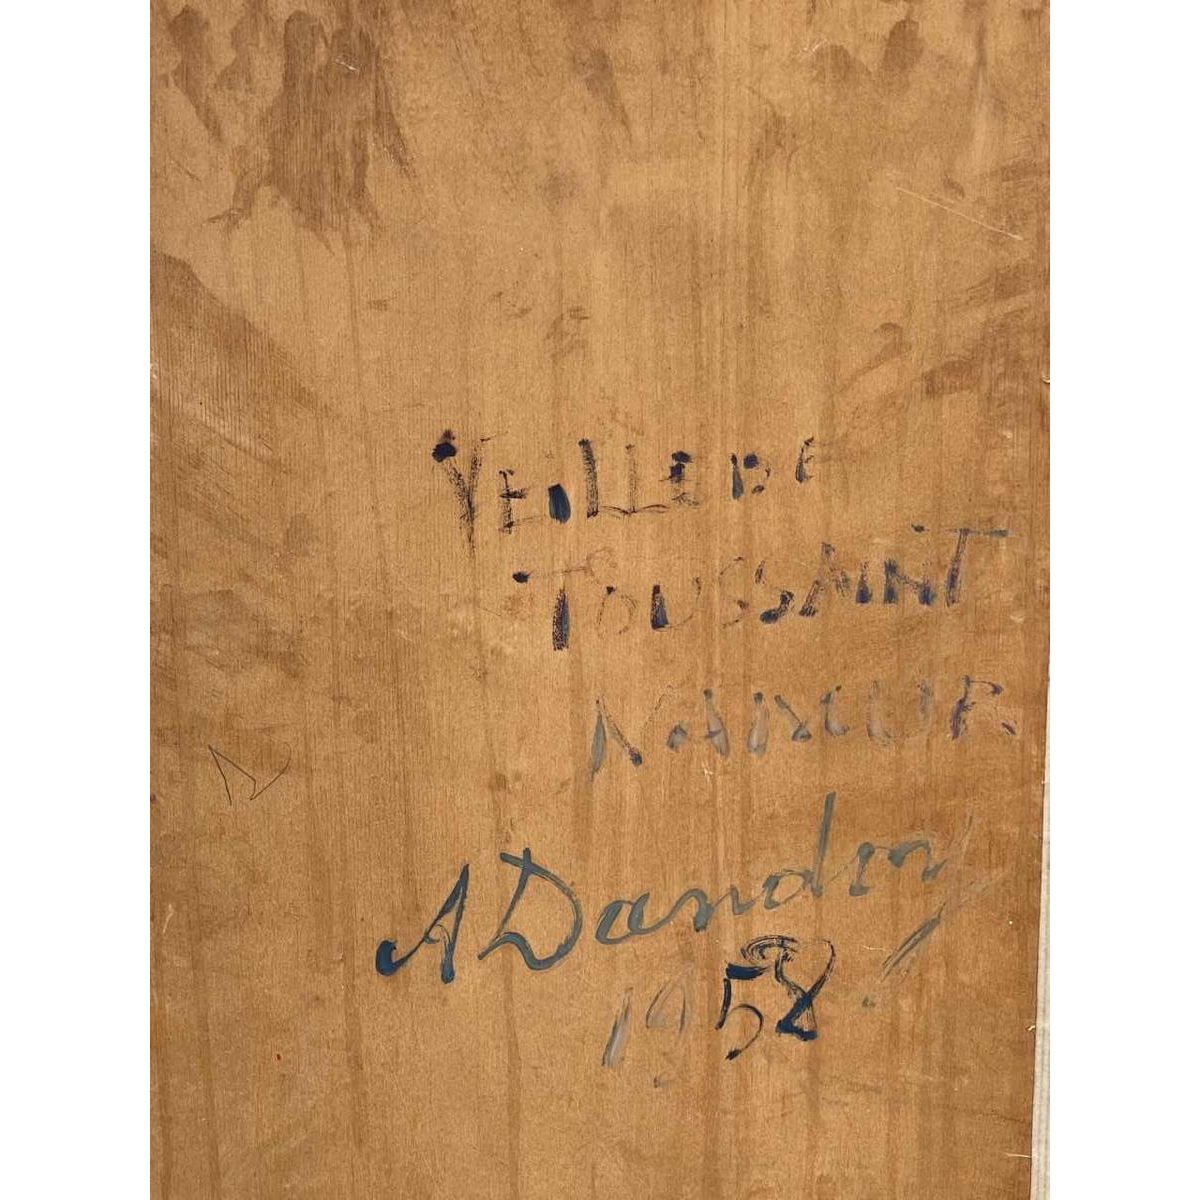 VEILLE DE
TOUSSAINT
NAMUR
A Dandoy
1958.